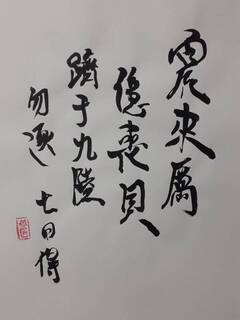 震来厲
億喪貝
躋于九陵
勿逐 七日得